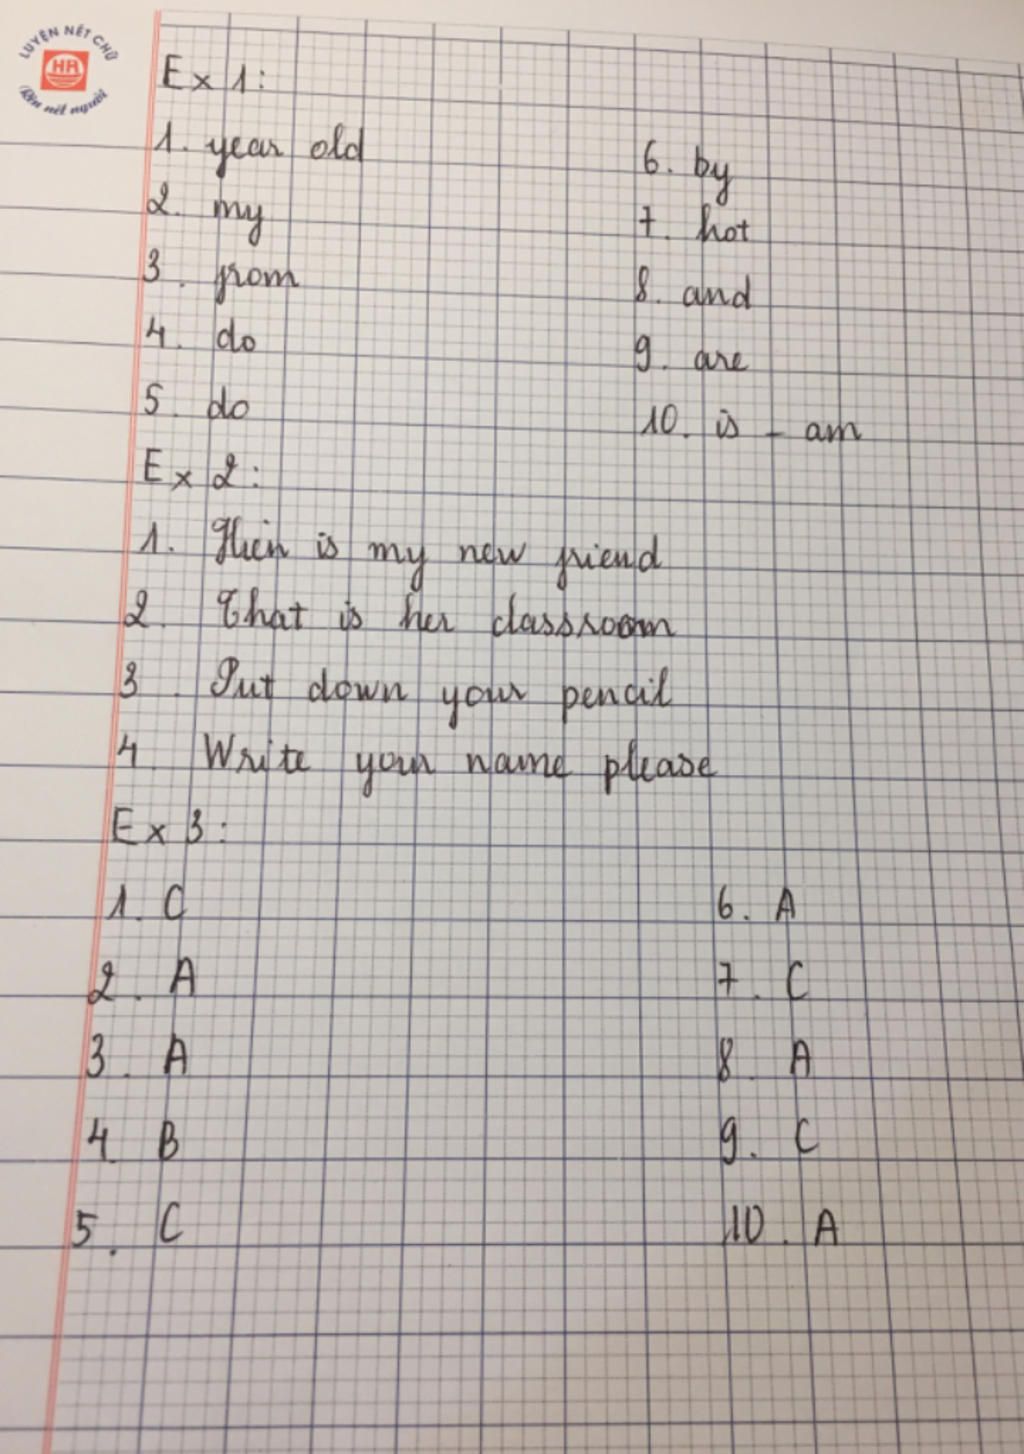 LUYỆN NÉT CHỮ
HA
Rèn nết người
Ex 1:
1. year old
2. my
3. from
4. do
5. do
6. by
7. hot
8. and
9. are
10. is - am
Ex 2:
1. Hien is my new friend
2. That is her classroom
3. Put down your pencil
4. Write your name please
Ex 3:
1. C
2. A
3. A
4. B
5. C
6. A
7. C
8. A
9. C
10. A